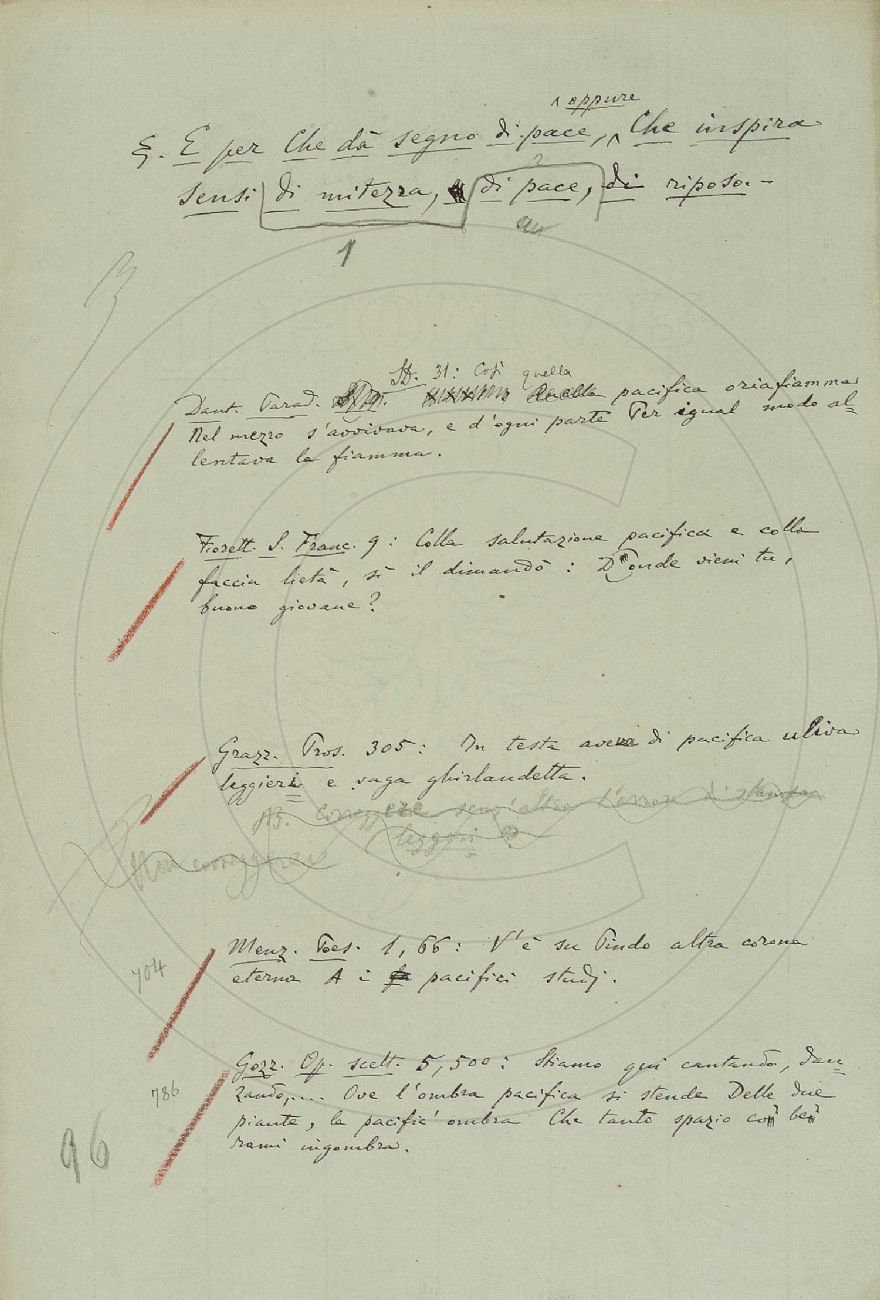 oppure
§. E per Che dà segno di pace, Che inspira
sensi di mitezza, di pace, di riposo.–
2
1
31: Così quella
Dant. Parad. pacifica oriafiamma
Nel mezzo s'avvivava, e d'ogni parte Per igual modo al=
lentava la fiamma.
Fiorett. S. Franc. 9: Colla salutazione pacifica e colla
faccia lieta, sì il dimandò: Donde vieni tu,
buono giovane?
Grazz. Pros. 305: In testa avea di pacifica uliva
leggieri e vaga ghirlandetta.
NB. correggere senz'altro l'errore di stampa
leggori
Non correggere
Menz. Poes. 1, 66: V'è su Pindo altra corona
704
eterna A i pacifici studj.
Gozz. Op. scelt. 5, 500: Stiamo qui cantando, dan=
786
zando,.... Ove l'ombra pacifica si stende Delle due
piante, la pacific' ombra Che tanto spazio co' be'
rami ingombra.
96